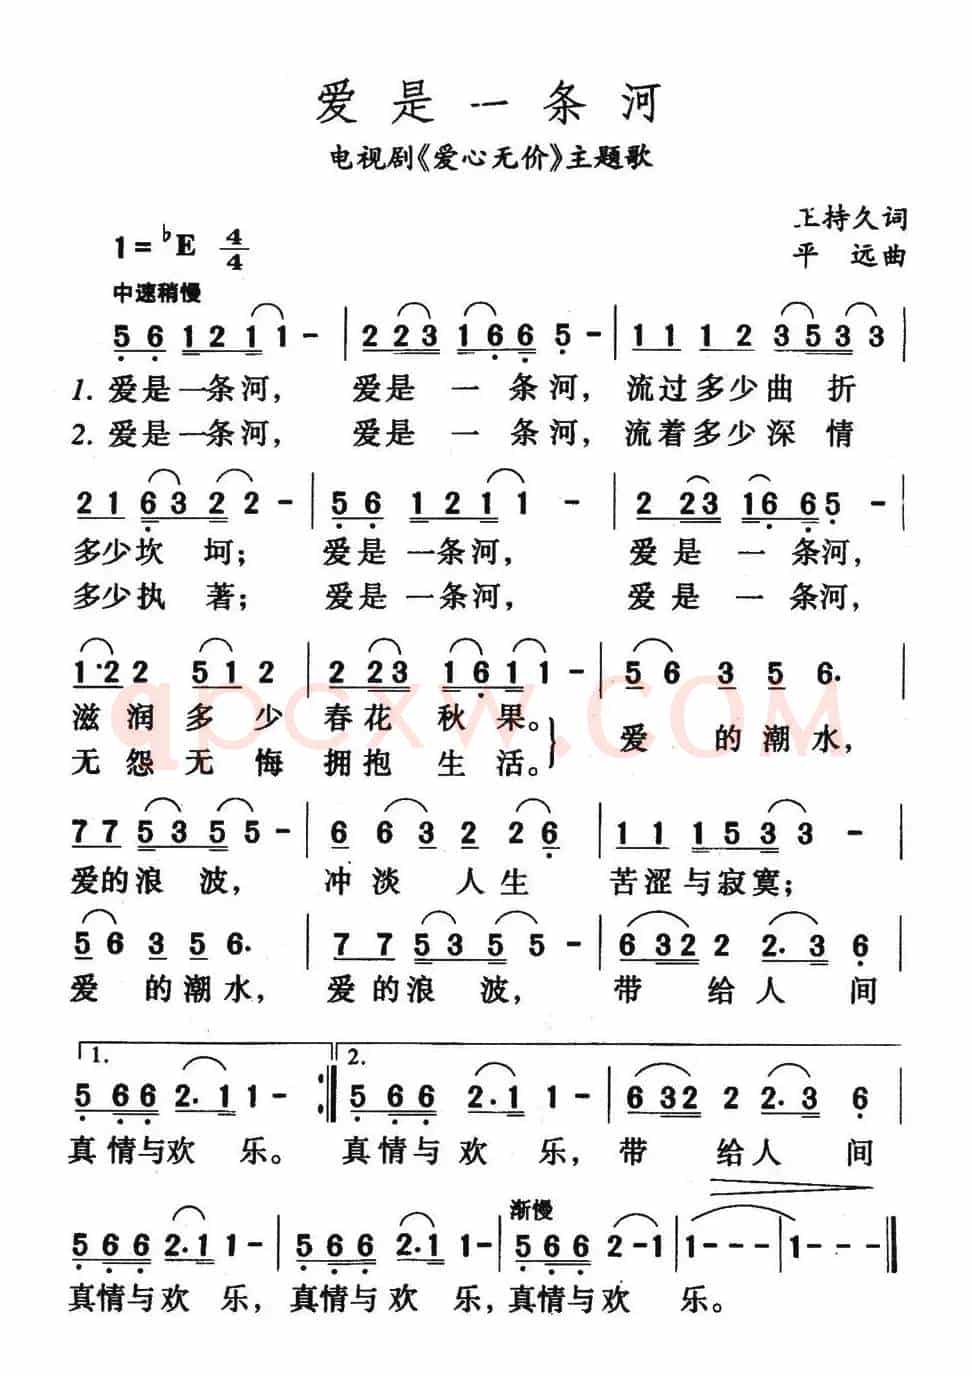 爱是一条河
电视剧《爱心无价》主题歌
王持久词
1=♭E 4/4
平 远曲
中速稍慢
5 6 1 2 1 1 - | 2 2 3 1 6 6 5 - | 1 1 1 2 3 5 3 3 |
1. 爱是一条河， 爱是 一 条河，流过多少曲 折
2. 爱是一条河， 爱是 一 条河，流着多少深 情
2 1 6 3 2 2 - | 5 6 1 2 1 1 - | 2 2 3 1 6 6 5 - |
多少坎 坷； 爱是一条河， 爱是 一 条河，
多少执 著； 爱是一条河， 爱是 一 条河，
1·2 2 5 1 2 | 2 2 3 1 6 1 1 - | 5 6 3 5 6. |
滋润多少 春花 秋 果。 爱 的潮水，
无怨无悔 拥抱 生 活。
qpcxw.com
7 7 5 3 5 5 - | 6 6 3 2 2 6 | 1 1 1 5 3 3 - |
爱的浪 波， 冲淡 人生 苦涩与寂寞；
5 6 3 5 6. | 7 7 5 3 5 5 - | 6 3 2 2 2. 3 6 |
爱 的潮水， 爱的浪 波， 带 给人 间
1. 2.
5 6 6 2. 1 1 - :‖ 5 6 6 2. 1 1 - | 6 3 2 2 2. 3 6 |
真情与欢 乐。 真情与 欢 乐，带 给人 间
渐慢
5 6 6 2. 1 1 - | 5 6 6 2. 1 1 - | 5 6 6 2 - 1 | 1 - - - | 1 - - - ‖
真情与欢 乐，真情与欢 乐，真情与欢 乐。